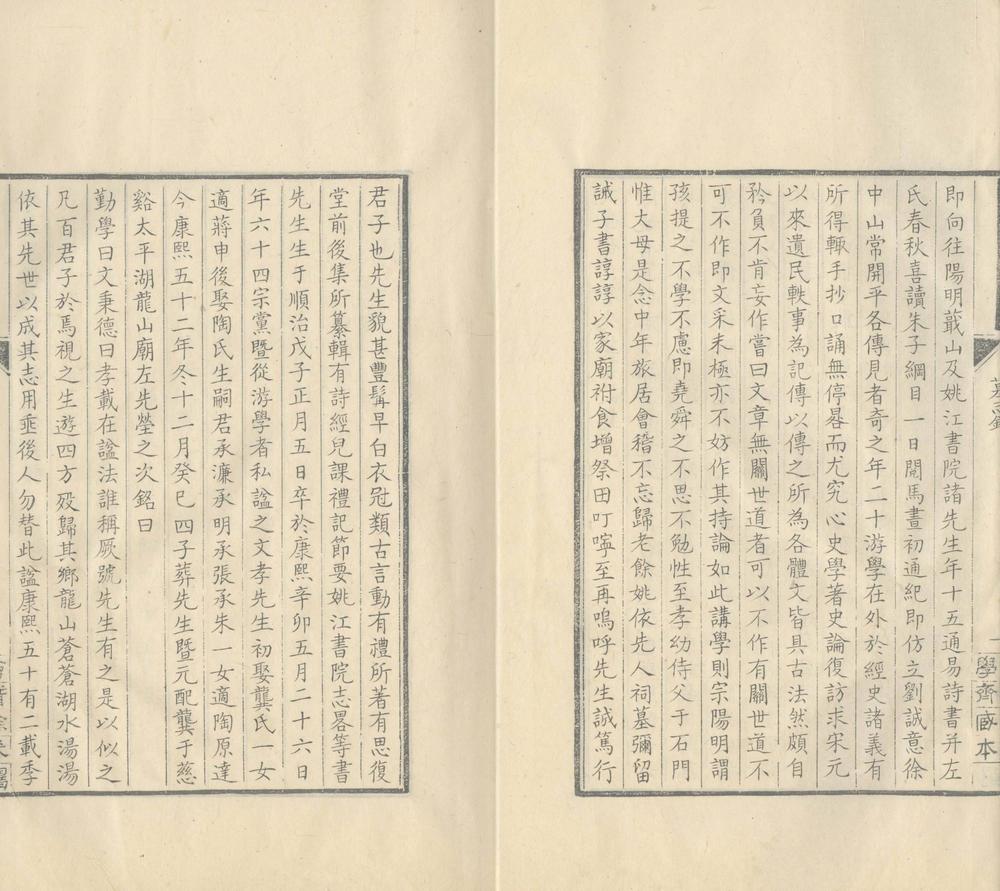 即向往陽明蕺山及姚江書院諸先生年十五通易詩書并左
氏春秋喜讀朱子綱目一日閱馬晝初通紀即仿立劉誠意徐
中山常開平各傳見者奇之年二十游學在外於經史諸義有
所得輙手抄口誦無停晷而尤究心史學著史論復訪求宋元
以來遺民軼事為記傳以傳之所為各體文皆具古法然頗自
矜負不肯妄作嘗曰文章無關世道者可以不作有關世道不
可不作即文采未極亦不妨作其持論如此講學則宗陽明謂
孩提之不學不慮即堯舜之不思不勉性至孝幼侍父于石門
惟大母是念中年旅居會稽不忘歸老餘姚依先人祠墓彌留
誡子書諄諄以家廟祔食增祭田叮嚀至再嗚呼先生誠篤行
學齊
本
君子也先生貌甚豐髯早白衣冠類古言動有禮所著有思復
堂前後集所纂輯有詩經兒課禮記節要姚江書院志畧等書
先生生于順治戊子正月五日卒於康熙辛卯五月二十六日
年六十四宗黨暨從游學者私謚之文孝先生初娶龔氏一女
適蔣申後娶陶氏生嗣君承濂承明承張承朱一女適陶原達
今康熙五十二年冬十二月癸巳四子葬先生暨元配龔于慈
谿太平湖龍山廟左先塋之次銘曰
勤學曰文秉德曰孝載在謚法誰稱厥號先生有之是以似之
凡百君子於焉視之生遊四方歿歸其鄉龍山蒼蒼湖水湯湯
依其先世以成其志用垂後人勿替此謚康熙五十有二載季